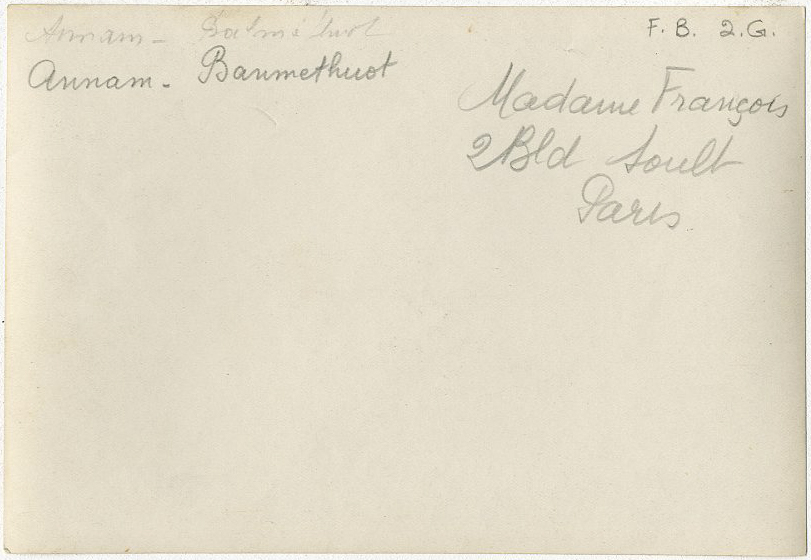 Annam -
F. B. 2. G.
Annam - Banmethuot
Madame François
2 Bld Soult
Paris